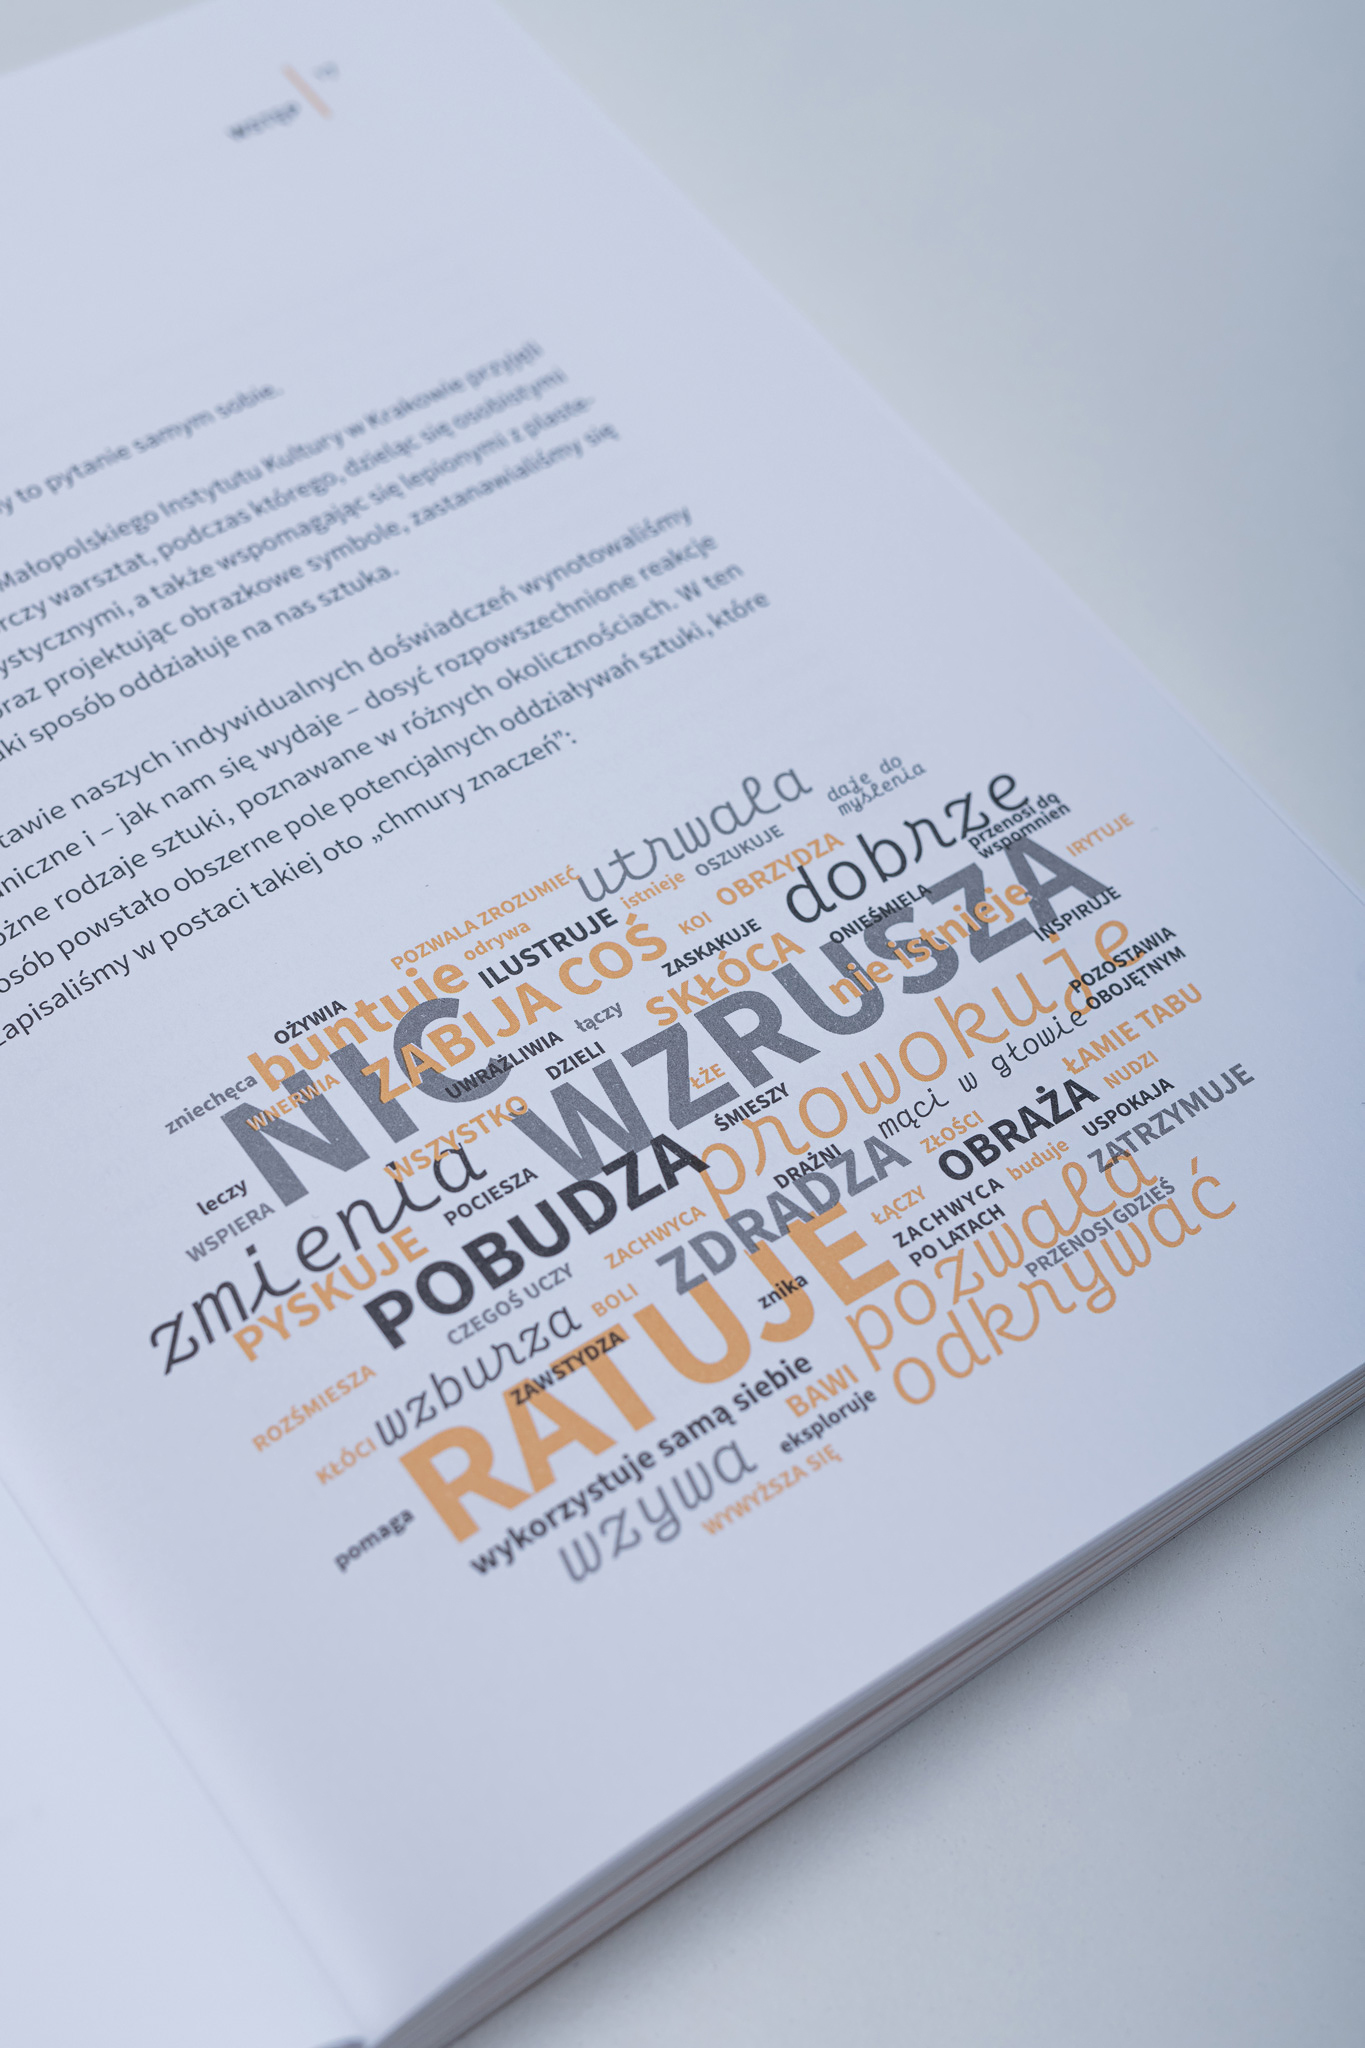 wstęp
y to pytanie samym sobie.
Małopolskiego Instytutu Kultury w Krakowie przyjęli
rczy warsztat, podczas którego, dzieląc się osobistymi
ystycznymi, a także wspomagając się lepionymi z plaste-
oraz projektując obrazkowe symbole, zastanawialiśmy się
aki sposób oddziałuje na nas sztuka.
tawie naszych indywidualnych doświadczeń wynotowaliśmy
niczne i – jak nam się wydaje – dosyć rozpowszechnione reakcje
óżne rodzaje sztuki, poznawane w różnych okolicznościach. W ten
osób powstało obszerne pole potencjalnych oddziaływań sztuki, które
zapisaliśmy w postaci takiej oto „chmury znaczeń”:
utrwala
daje do
myślenia
dobrze
przenosi do
wspomnień
IRYTUJE
POZWALA ZROZUMIEĆ
istnieje
OSZUKUJE
OBRZYDZA
odrywa
ILUSTRUJE
KOI
ZASKAKUJE
ONIEŚMIELA
INSPIRUJE
OŻYWIA
buntuje
ZABIJA COŚ
SKŁÓCA
nie istnieje
WZRUSZA
NIC
zniechęca
WNERWIA
UWRAŻLIWIA
łączy
DZIELI
ŁŻE
ŚMIESZY
prowokuje
POZOSTAWIA
OBOJĘTNYM
WSZYSTKO
mąci w głowie
ŁAMIE TABU
leczy
WSPIERA
zmienia
POCIESZA
POBUDZA
DRAŻNI
ZŁOŚCI
OBRAŻA
NUDZI
USPOKAJA
ZATRZYMUJE
PYSKUJE
ZACHWYCA
ZDRADZA
ŁĄCZY
ZACHWYCA
PO LATACH
buduje
pozwala
PRZENOSI GDZIEŚ
odkrywać
CZEGOŚ UCZY
BOLI
RATUJE
znika
ROZŚMIESZA
wzburza
ZAWSTYDZA
KŁÓCI
wykorzystuje samą siebie
BAWI
eksploruje
pomaga
wzywa
WYWYŻSZA SIĘ